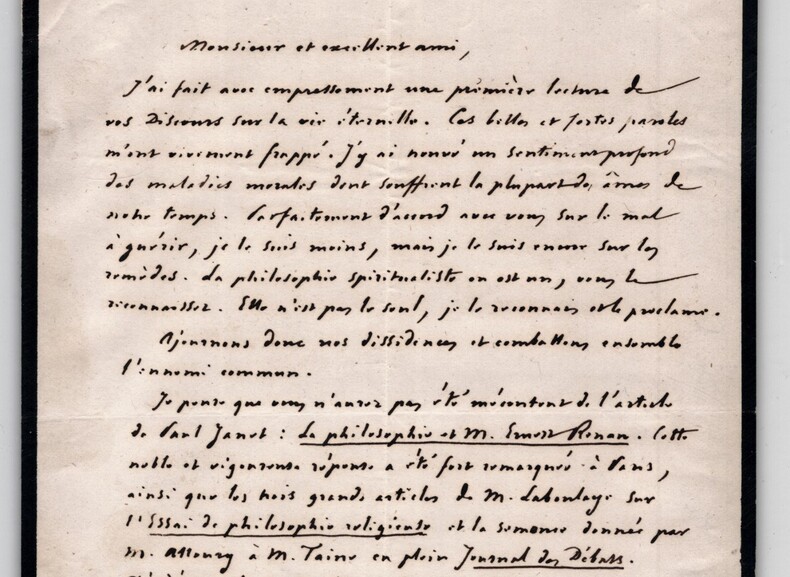 Monsieur et excellent ami,
J'ai fait avec empressement une première lecture de
vos Discours sur la vie éternelle. Ces belles et fortes paroles
m'ont vivement frappé. J'y ai trouvé un sentiment profond
des maladies morales dont souffrent la plupart des âmes de
notre temps. Parfaitement d'accord avec vous sur le mal
à guérir, je le suis moins, mais je le suis encore sur les
remèdes. La philosophie spiritualiste en est un, vous le
reconnaissez. Elle n'est pas le seul, je le reconnais et le proclame.
Ajournons donc nos dissidences et combattons ensemble
l'ennemi commun.
Je pense que vous n'aurez pas été mécontent de l'article
de Paul Janet : La philosophie et M. Ernest Renan. Cette
noble et vigoureuse réponse a été fort remarquée à Paris,
ainsi que les trois grands articles de M. Laboulaye sur
l'Essai de philosophie religieuse et la semonce donnée par
M. à M. Taine en plein Journal des Débats.